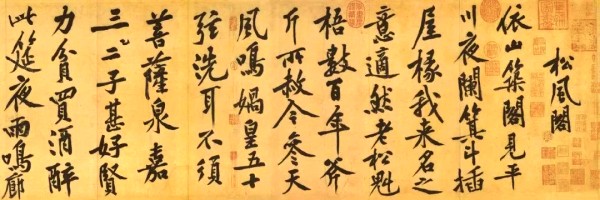 松風閣
依山築閣見平
川夜闌箕斗插
屋椽我來名之
意適然老松魁
梧數百年斧
斤所赦今參天
風鳴媧皇五十
弦洗耳不須
菩薩泉嘉
三二子甚好賢
力貧買酒醉
此筵夜雨鳴廊